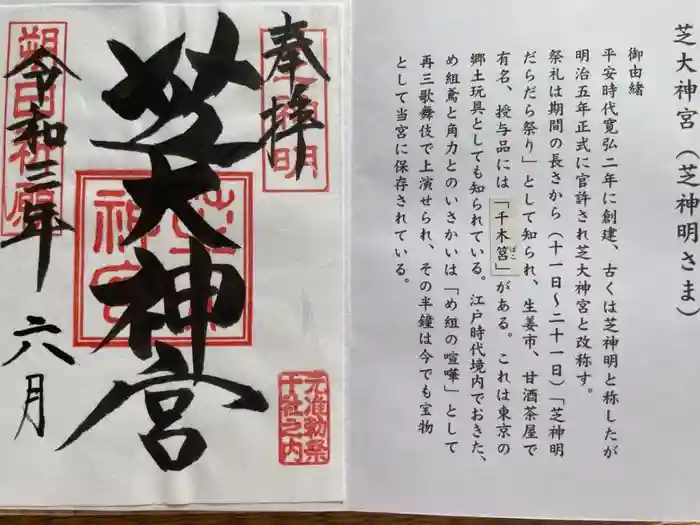 芝大神宮（芝神明さま）
御由緒
平安時代寛弘二年に創建、古くは芝神明と称したが
明治五年正式に官許され芝大神宮と改称す。
祭礼は期間の長さから（十一日～二十一日）「芝神明
だらだら祭り」として知られ、生姜市、甘酒茶屋で
有名、授与品には「千木筥」がある。これは東京の
ばこ
郷土玩具としても知られている。江戸時代境内でおきた、
め組鳶と角力とのいさかいは「め組の喧嘩」として
再三歌舞伎で上演せられ、その半鐘は今でも宝物
として当宮に保存されている。
奉拝
芝神明
芝大神宮
元准勅祭
十社之内
朔日祈願
令和三年
六月